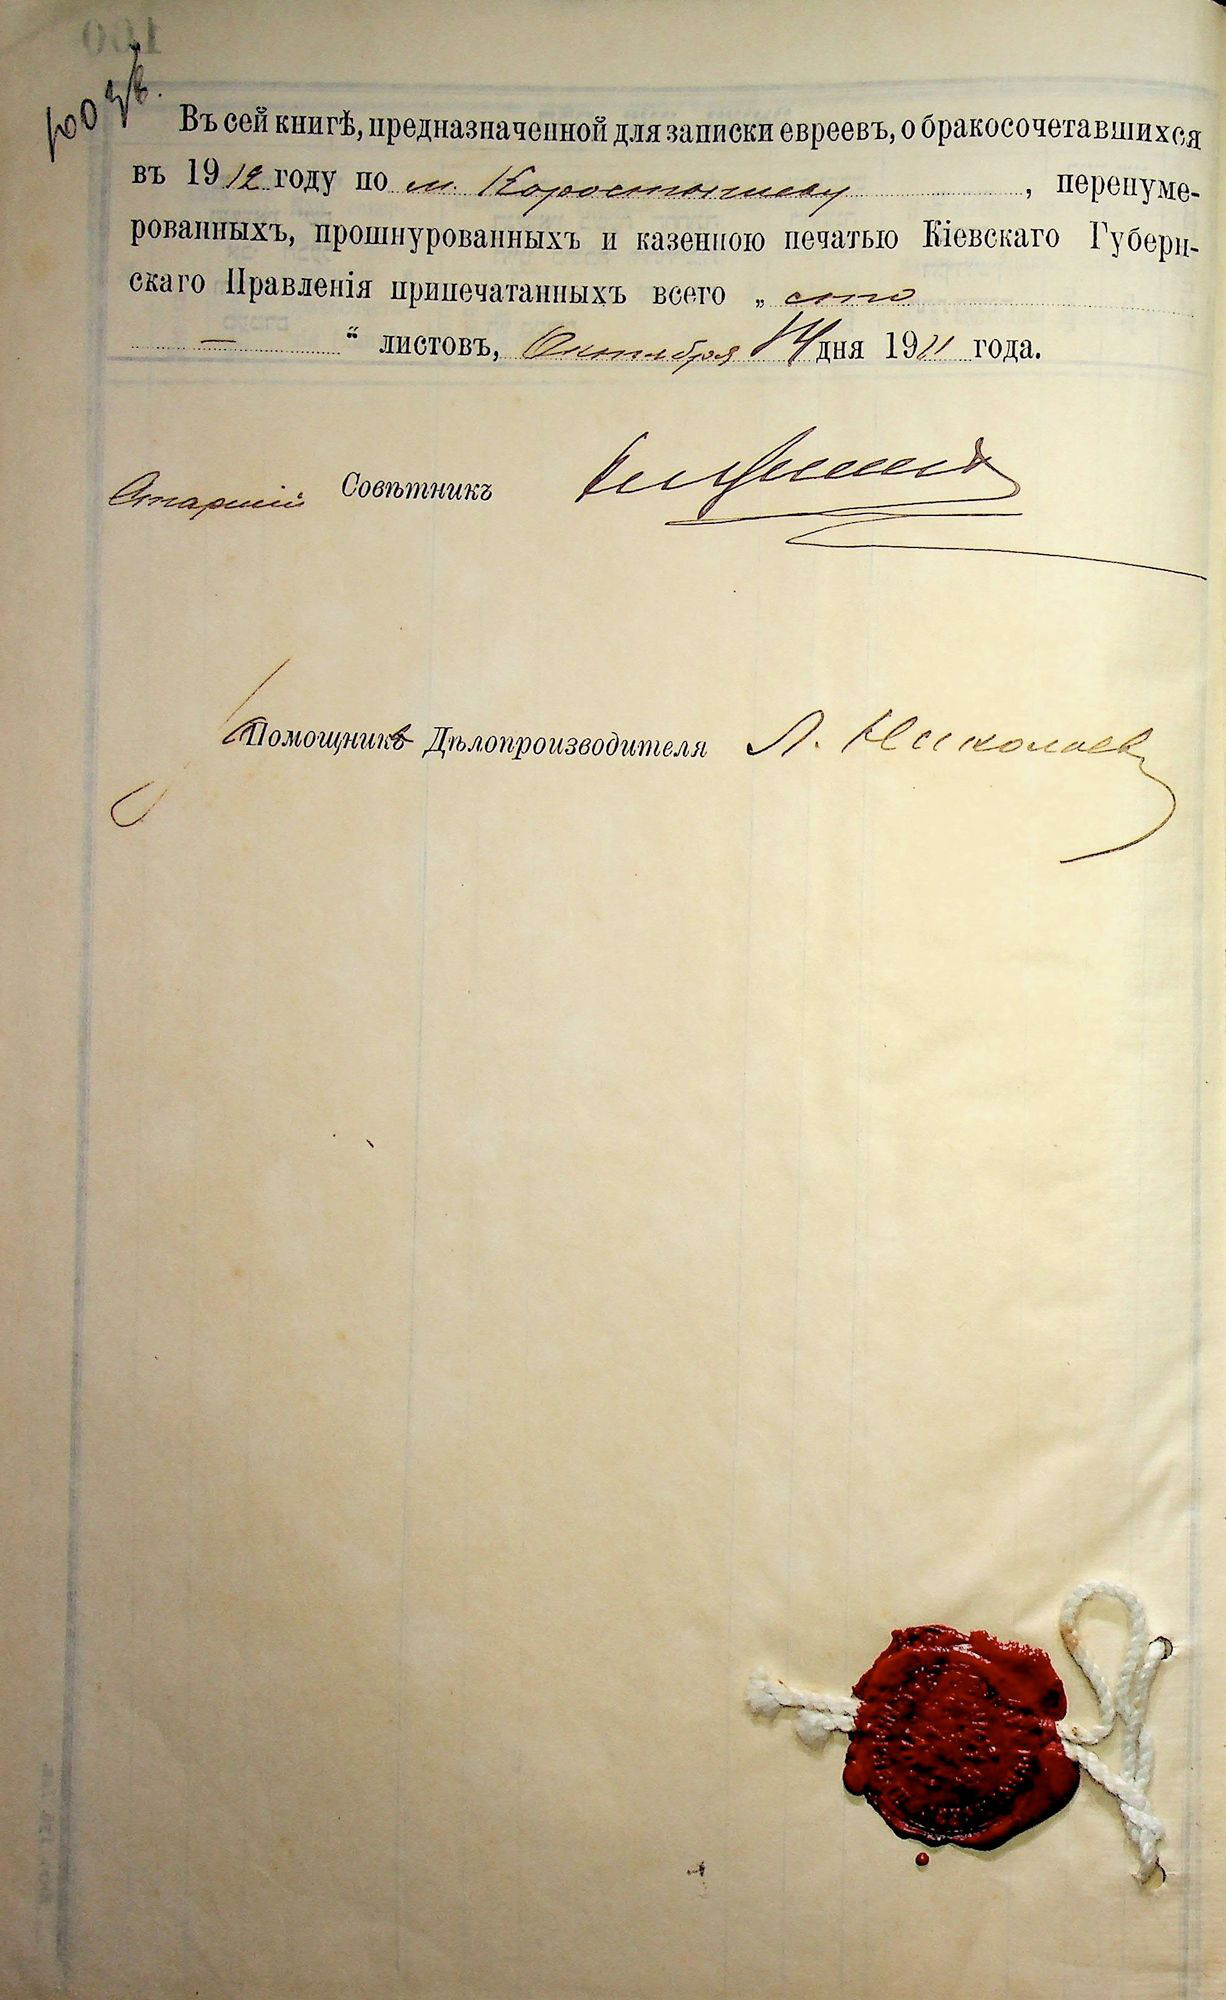 100
Въ сей книгѣ, предназначенной для записки евреевъ, о бракосочетавшихся
въ 1912 году по м. Коростышеву, перенуме-
рованныхъ, прошнурованныхъ и казенною печатью Кіевскаго Губерн-
скаго Правленія припечатанныхъ всего „ сто
— “ листовъ, Октября 14 дня 1911 года.
Старшій Совѣтникъ
Помощникъ Дѣлопроизводителя Л. Николаев